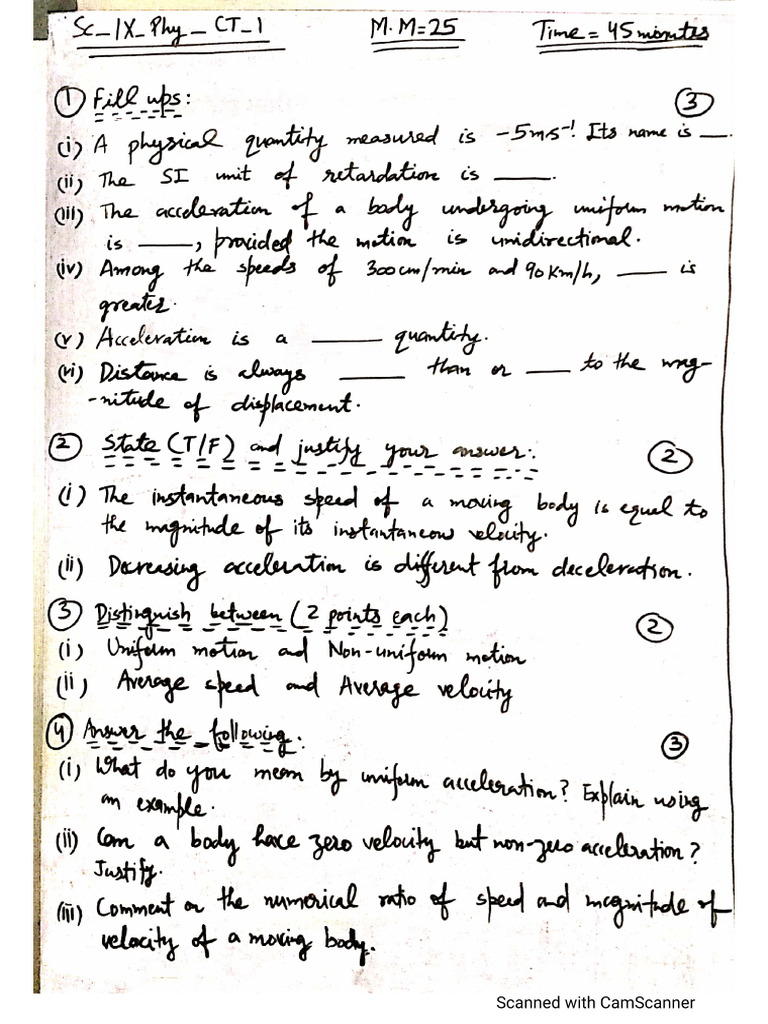 Sc_IX_Phy_CT_1 M.M=25 Time = 45 minutes
① Fill ups: ③
(i) A physical quantity measured is -5ms⁻¹. Its name is __.
(ii) The SI unit of retardation is ____.
(iii) The acceleration of a body undergoing uniform motion
is ____, provided the motion is unidirectional.
(iv) Among the speeds of 300cm/min and 90Km/h, ___ is
greater.
(v) Acceleration is a ____ quantity.
(vi) Distance is always ____ than or ___ to the mag-
-nitude of displacement.
② State (T/F) and justify your answer: ②
(i) The instantaneous speed of a moving body is equal to
the magnitude of its instantaneous velocity.
(ii) Decreasing acceleration is different from deceleration.
③ Distinguish between (2 points each) ②
(i) Uniform motion and Non-uniform motion
(ii) Average speed and Average velocity
④ Answer the following: ③
(i) What do you mean by uniform acceleration? Explain using
an example.
(ii) Can a body have zero velocity but non-zero acceleration?
Justify.
(iii) Comment on the numerical ratio of speed and magnitude of
velocity of a moving body.
Scanned with CamScanner